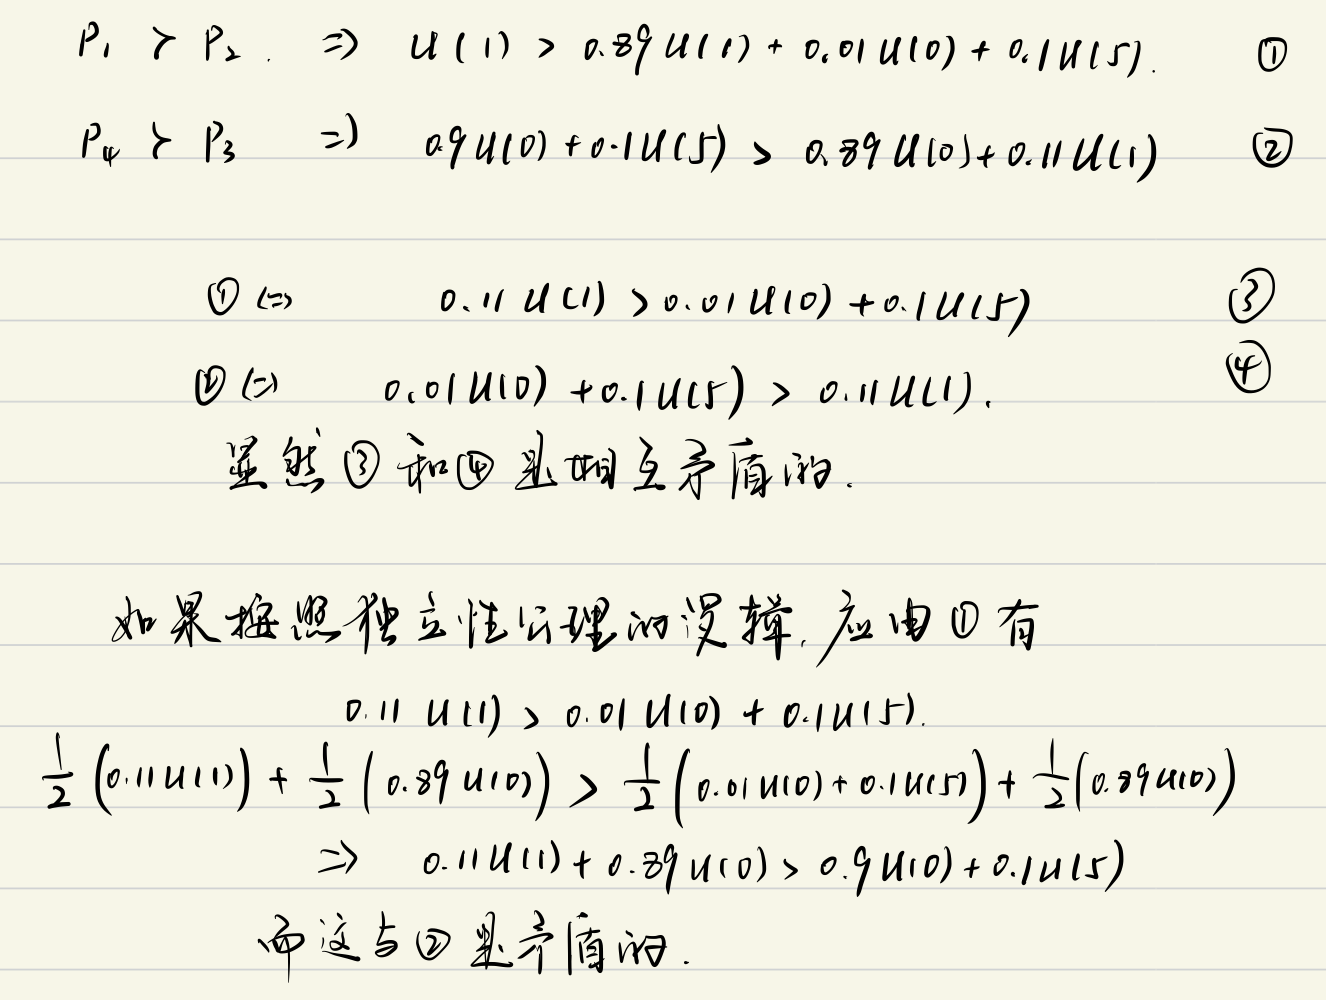 P₁ ≻ P₂. ⇒ u(1) > 0.89u(1) + 0.01u(0) + 0.1u(5). ①
P₄ ≻ P₃ ⇒ 0.9u(0) + 0.1u(5) > 0.89u(0) + 0.11u(1) ②
① ⇔ 0.11u(1) > 0.01u(0) + 0.1u(5) ③
② ⇔ 0.01u(0) + 0.1u(5) > 0.11u(1). ④
显然③和④是相互矛盾的.
如果按照独立性公理的逻辑,应由①有
0.11u(1) > 0.01u(0) + 0.1u(5).
1/2(0.11u(1)) + 1/2(0.89u(0)) > 1/2(0.01u(0) + 0.1u(5)) + 1/2(0.89u(0))
⇒ 0.11u(1) + 0.89u(0) > 0.9u(0) + 0.1u(5)
而这与②是矛盾的.